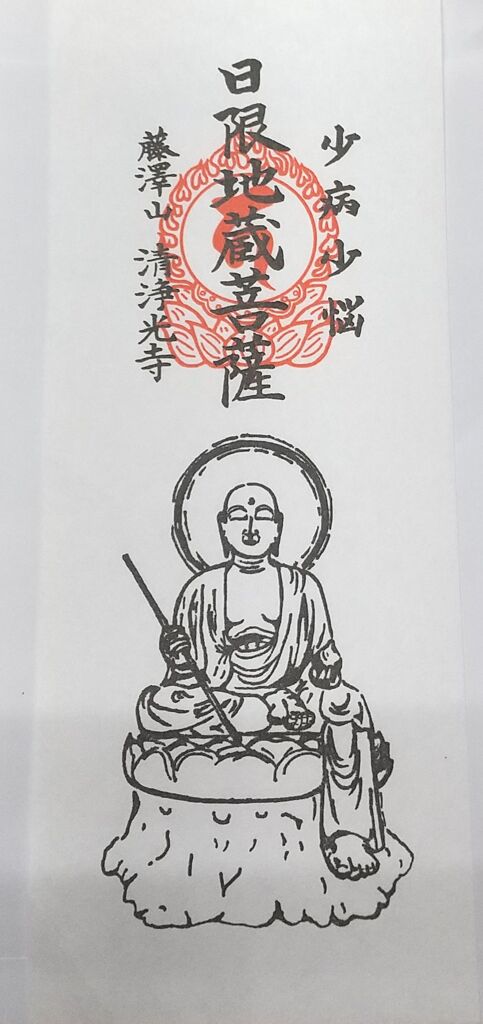 少病少悩
日限地蔵菩薩
藤澤山 清浄光寺